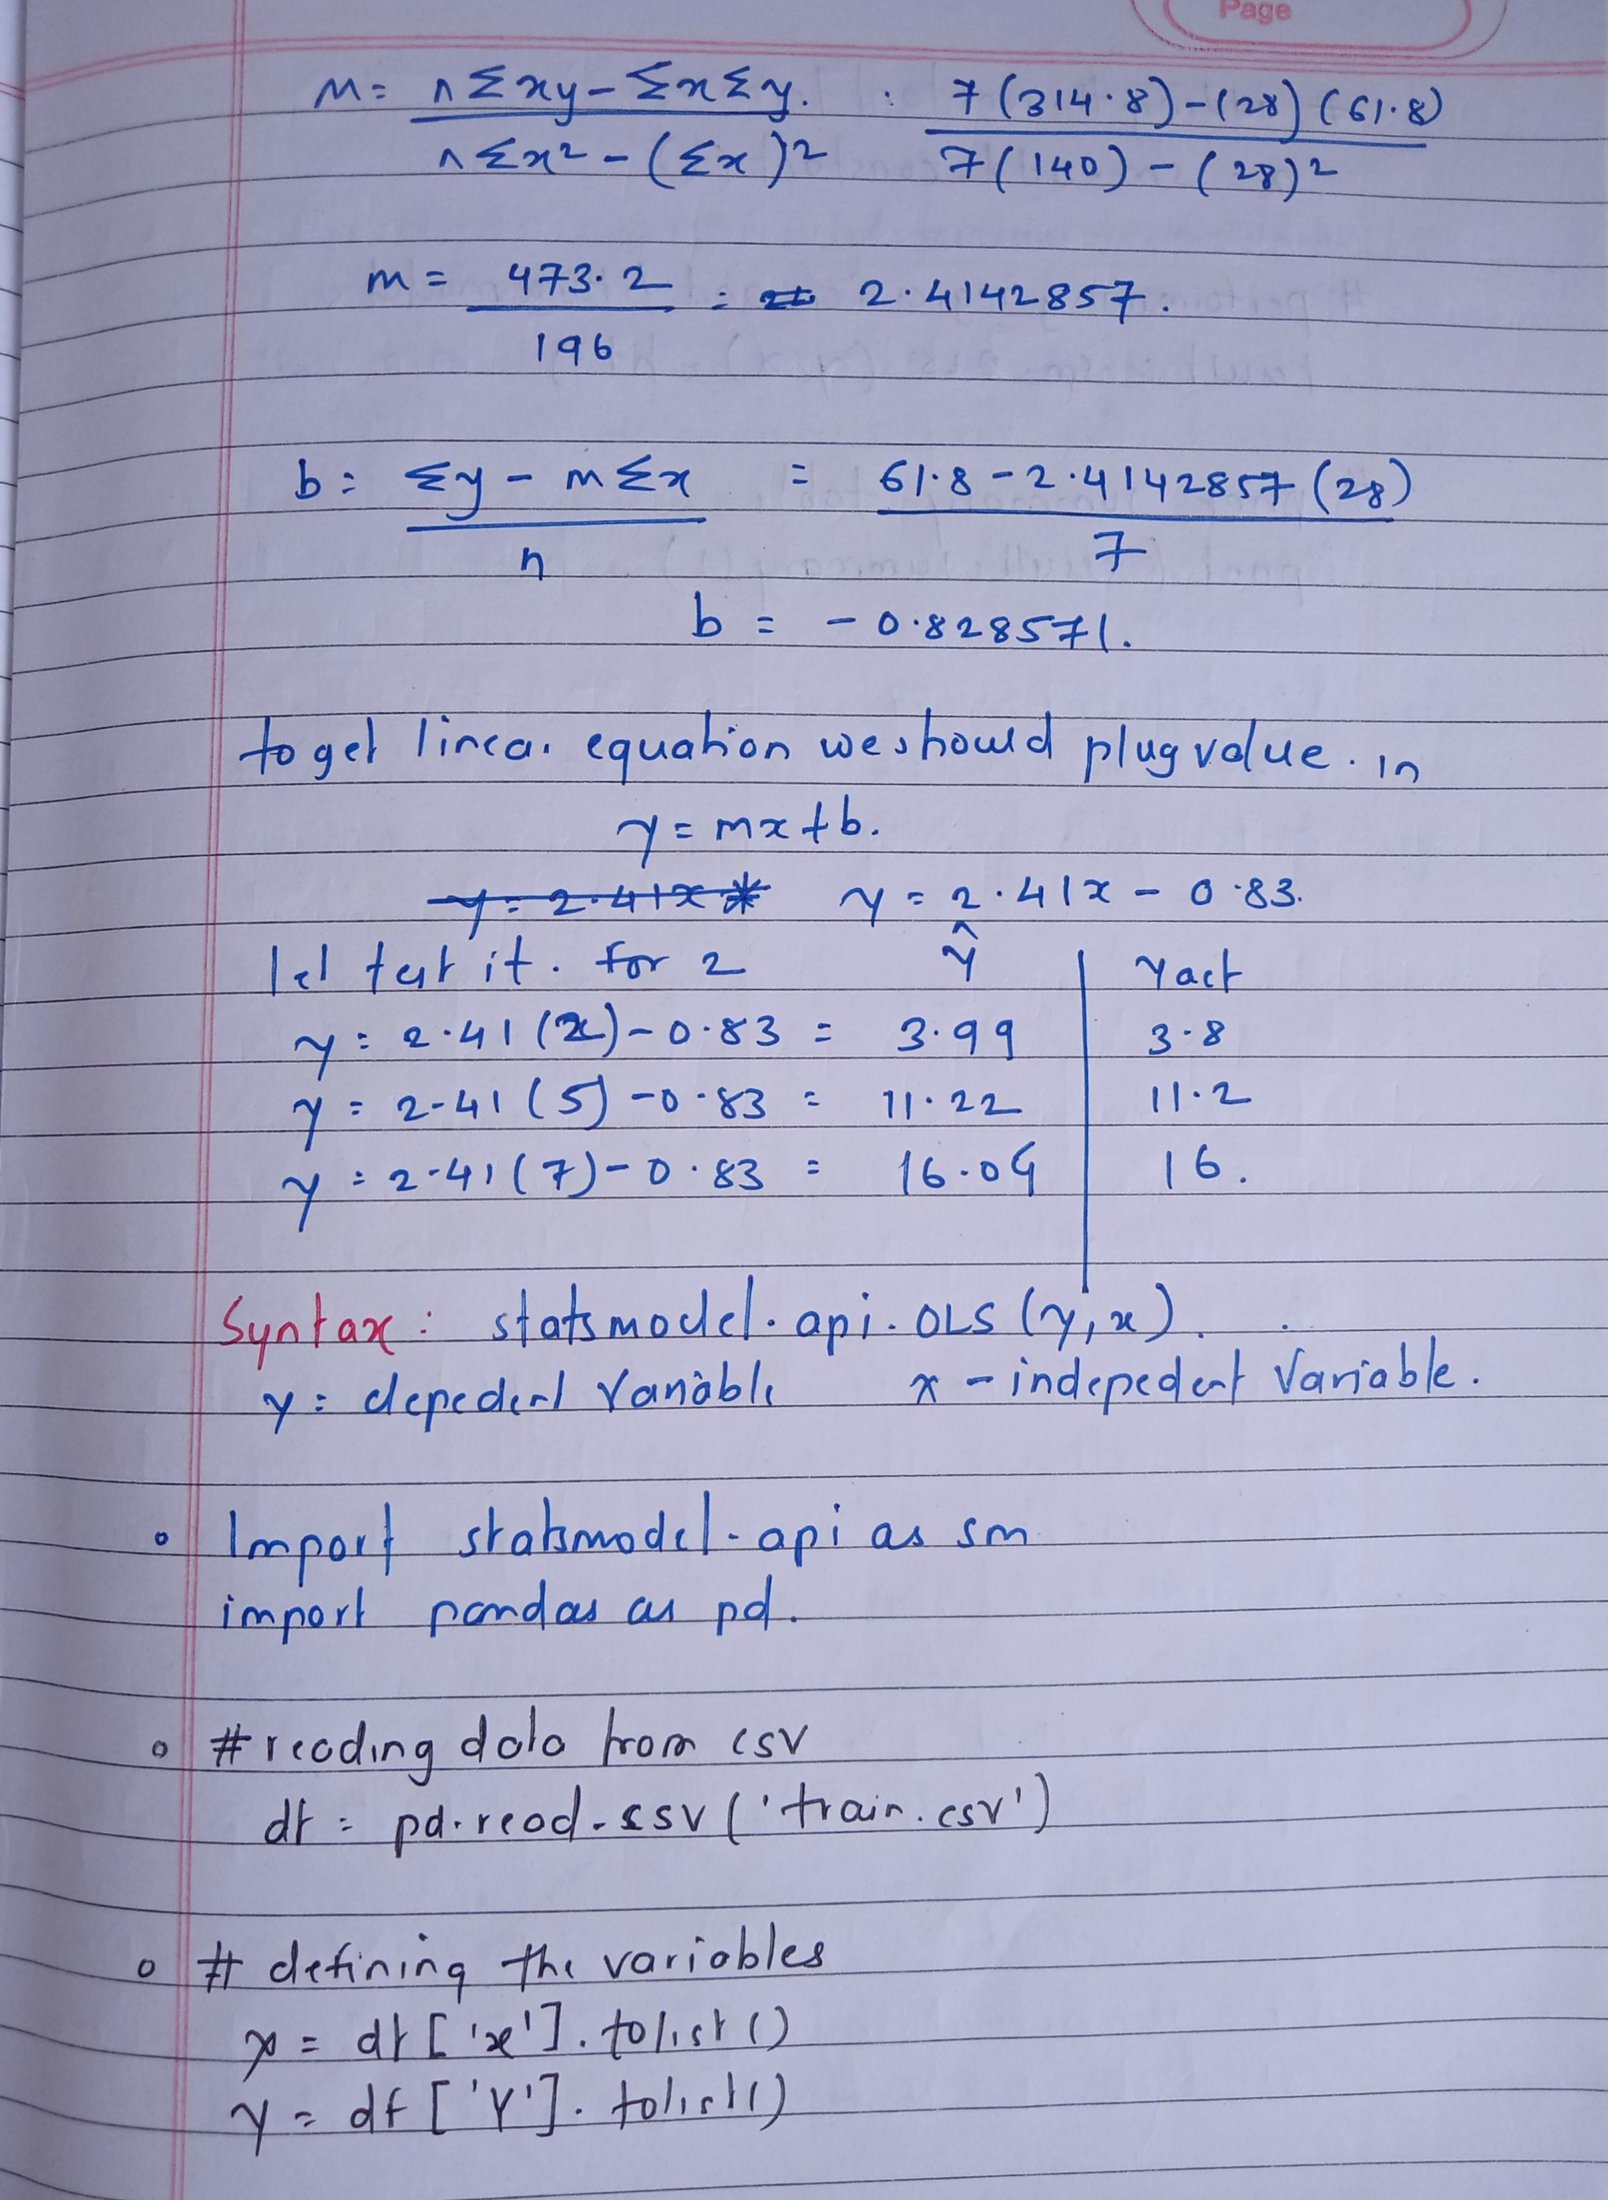 Page
M = nΣxy - ΣxΣy. : 7(314.8) - (28)(61.8)
nΣx² - (Σx)² 7(140) - (28)²
m = 473.2 = 2.4142857.
196
b = Σy - mΣx = 61.8 - 2.4142857(28)
n 7
b = -0.828571.
to get linear equation we should plug value. in
y = mx + b.
y = 2.41x y = 2.41x - 0.83.
let test it. for 2 ŷ Yact
y = 2.41(2) - 0.83 = 3.99 3.8
y = 2.41(5) - 0.83 = 11.22 11.2
y = 2.41(7) - 0.83 = 16.04 16.
Syntax: statsmodel.api.OLS(y,x).
y = depedent Variable x - indepedent Variable.
Import statsmodel.api as sm
import pandas as pd.
# reading data from csv
df = pd.read-csv('train.csv')
# defining the variables
x = df['x'].tolist()
y = df['Y'].tolist()